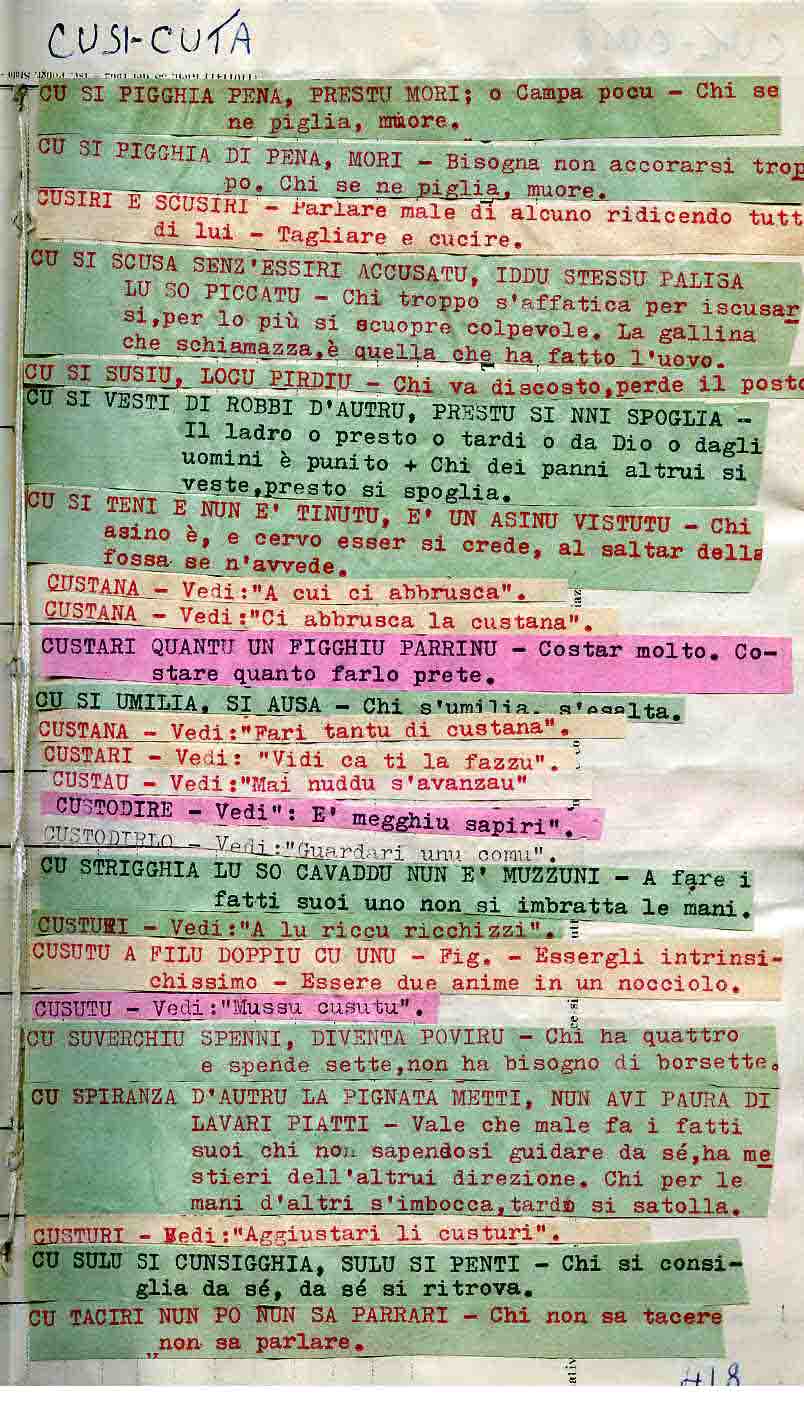 CUSI-CUTA
CU SI PIGGHIA PENA, PRESTU MORI; o Campa pocu - Chi se
ne piglia, muore.
CU SI PIGGHIA DI PENA, MORI - Bisogna non accorarsi trop
po. Chi se ne piglia, muore.
CUSIRI E SCUSIRI - Parlare male di alcuno ridicendo tutt
di lui - Tagliare e cucire.
CU SI SCUSA SENZ'ESSIRI ACCUSATU, IDDU STESSU PALISA
LU SO PICCATU - Chi troppo s'affatica per iscusar
si,per lo più si scuopre colpevole. La gallina
che schiamazza,è quella che ha fatto l'uovo.
CU SI SUSIU, LOCU PIRDIU - Chi va discosto,perde il posto
CU SI VESTI DI ROBBI D'AUTRU, PRESTU SI NNI SPOGLIA -
Il ladro o presto o tardi o da Dio o dagli
uomini è punito + Chi dei panni altrui si
veste,presto si spoglia.
CU SI TENI E NUN E' TINUTU, E' UN ASINU VISTUTU - Chi
asino è, e cervo esser si crede, al saltar della
fossa se n'avvede.
CUSTANA - Vedi:"A cui ci abbrusca".
CUSTANA - Vedi:"Ci abbrusca la custana".
CUSTARI QUANTU UN FIGGHIU PARRINU - Costar molto. Co-
stare quanto farlo prete.
CU SI UMILIA, SI AUSA - Chi s'umilia, s'esalta.
CUSTANA - Vedi:"Fari tantu di custana".
CUSTARI - Vedi: "Vidi ca ti la fazzu".
CUSTAU - Vedi:"Mai nuddu s'avanzau"
CUSTODIRE - Vedi": E' megghiu sapiri".
CUSTODIRLO - Vedi:"Guardari unu comu".
CU STRIGGHIA LU SO CAVADDU NUN E' MUZZUNI - A fare i
fatti suoi uno non si imbratta le mani.
CUSTURI - Vedi:"A lu riccu ricchizzi".
CUSUTU A FILU DOPPIU CU UNU - Fig. - Essergli intrinsi-
chissimo - Essere due anime in un nocciolo.
CUSUTU - Vedi:"Mussu cusutu".
CU SUVERCHIU SPENNI, DIVENTA POVIRU - Chi ha quattro
e spende sette,non ha bisogno di borsette.
CU SPIRANZA D'AUTRU LA PIGNATA METTI, NUN AVI PAURA DI
LAVARI PIATTI - Vale che male fa i fatti
suoi chi non sapendosi guidare da sé,ha me
stieri dell'altrui direzione. Chi per le
mani d'altri s'imbocca,tardi si satolla.
CUSTURI - Vedi:"Aggiustari li custuri".
CU SULU SI CUNSIGGHIA, SULU SI PENTI - Chi si consi-
glia da sé, da sé si ritrova.
CU TACIRI NUN PO NUN SA PARRARI - Chi non sa tacere
non sa parlare.
418